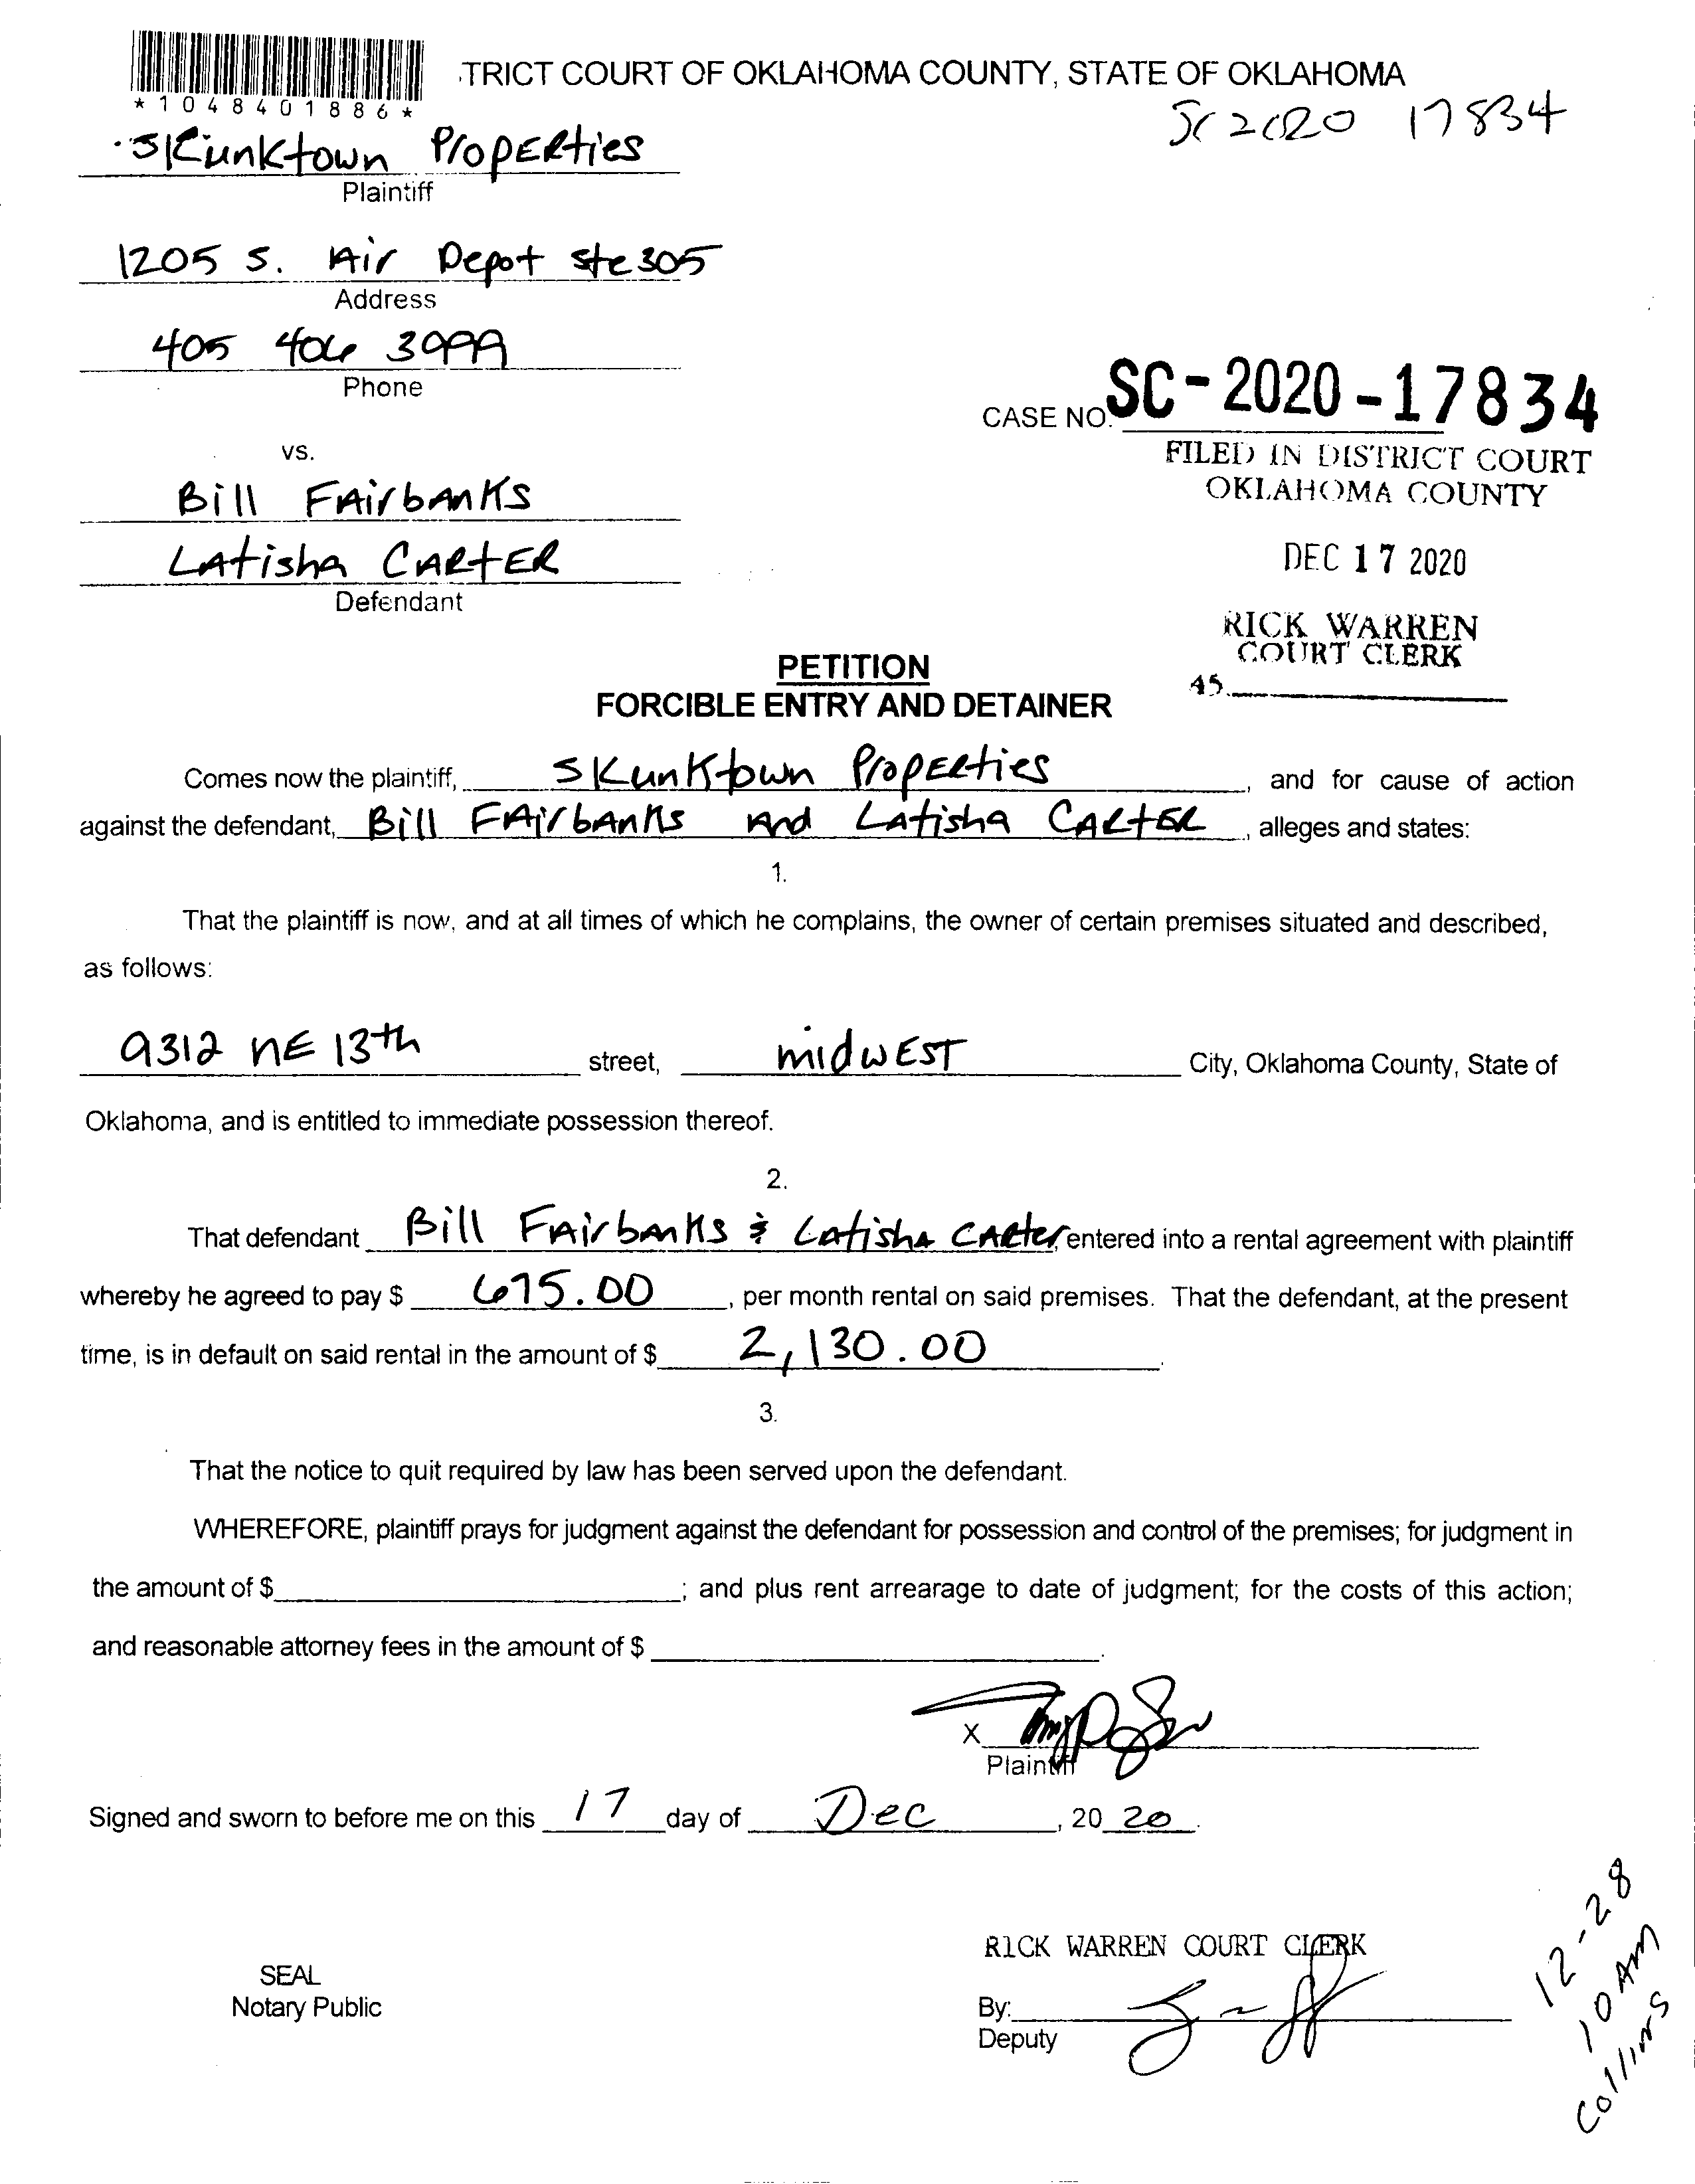 TRICT COURT OF OKLAHOMA COUNTY, STATE OF OKLAHOMA
*1048401886*
SC 2020 17834
Skunktown Properties
Plaintiff
1205 S. Air Depot Ste 305
Address
405 406 3999
Phone
CASE NO. SC-2020-17834
vs.
FILED IN DISTRICT COURT
OKLAHOMA COUNTY
Bill Fairbanks
Latisha Carter
Defendant
DEC 17 2020
RICK WARREN
COURT CLERK
45.
PETITION
FORCIBLE ENTRY AND DETAINER
Comes now the plaintiff, Skunktown Properties, and for cause of action
against the defendant, Bill Fairbanks and Latisha Carter, alleges and states:
1.
That the plaintiff is now, and at all times of which he complains, the owner of certain premises situated and described,
as follows:
9312 NE 13th street, midwest City, Oklahoma County, State of
Oklahoma, and is entitled to immediate possession thereof.
2.
That defendant Bill Fairbanks & Latisha Carter entered into a rental agreement with plaintiff
whereby he agreed to pay $ 675.00, per month rental on said premises. That the defendant, at the present
time, is in default on said rental in the amount of $ 2,130.00.
3.
That the notice to quit required by law has been served upon the defendant.
WHEREFORE, plaintiff prays for judgment against the defendant for possession and control of the premises; for judgment in
the amount of $ ; and plus rent arrearage to date of judgment; for the costs of this action;
and reasonable attorney fees in the amount of $ .
X
Plaintiff
Signed and sworn to before me on this 17 day of Dec, 2020.
RICK WARREN COURT CLERK
SEAL
Notary Public
By:
Deputy
12-28
10 AM
Collins